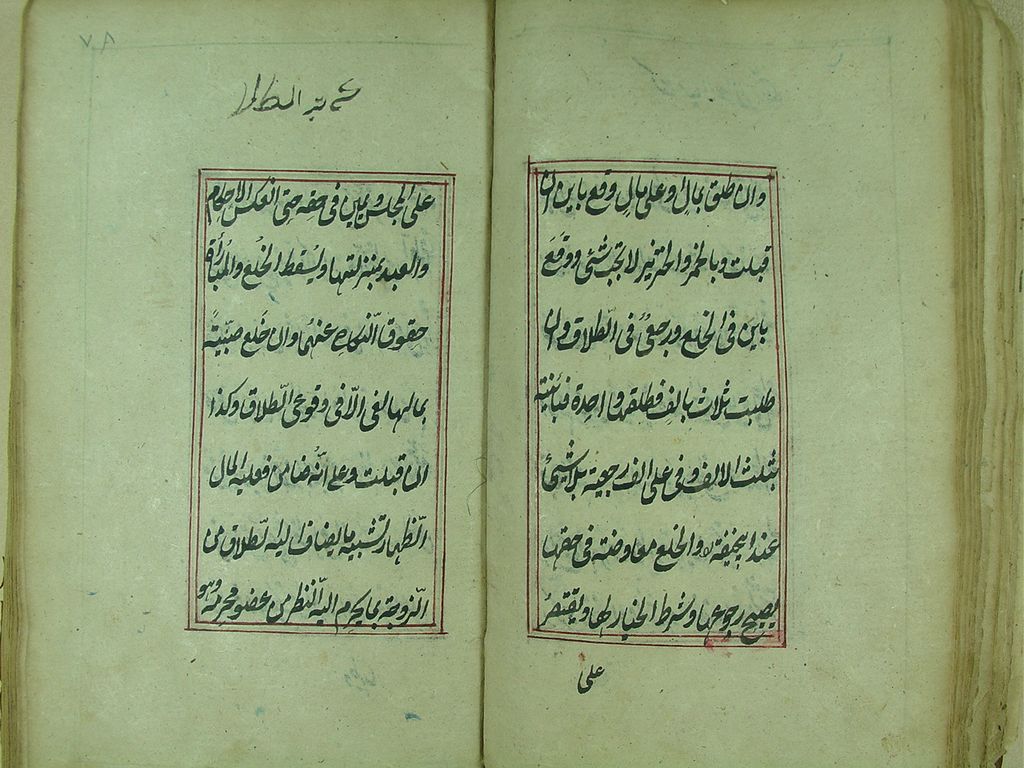 وان طلق بمالٍ او على مالٍ وقع باين ان
قبلت وبالخمر والخنزير لا تجب شئ ووقَعَ
باين فى الخلع ورجعىٌ فى الطلاق وان
طلبت ثلاث بالفٍ فطلقها واحِدة فبائنة
بثلث الالف وفى على الف رجعية بلا شئ
عند ابيحنيفة ره والخلع معاوضته فى حقها
يصح رجوعها وشرط الخيار لها ويقتصرُ
على
٧٨
على المجلس ويمين فى حقه حتى انعكس الاحكام
والعبد بمنزلتها ويُسقط الخُلع والمُبارأة
حقوق النكاح عنهُما وان خَلع صبّيتهً
بمالها لغى الّا فى وقوع الطّلاق وكذا
ان قبلت وعلى انّهُ ضامن فعليه المال
الّظهار تشبيه مايضاف اليه الّطلاق من
الّزوجة بما يحرم اليه النّظر من عضو محرمه وهو